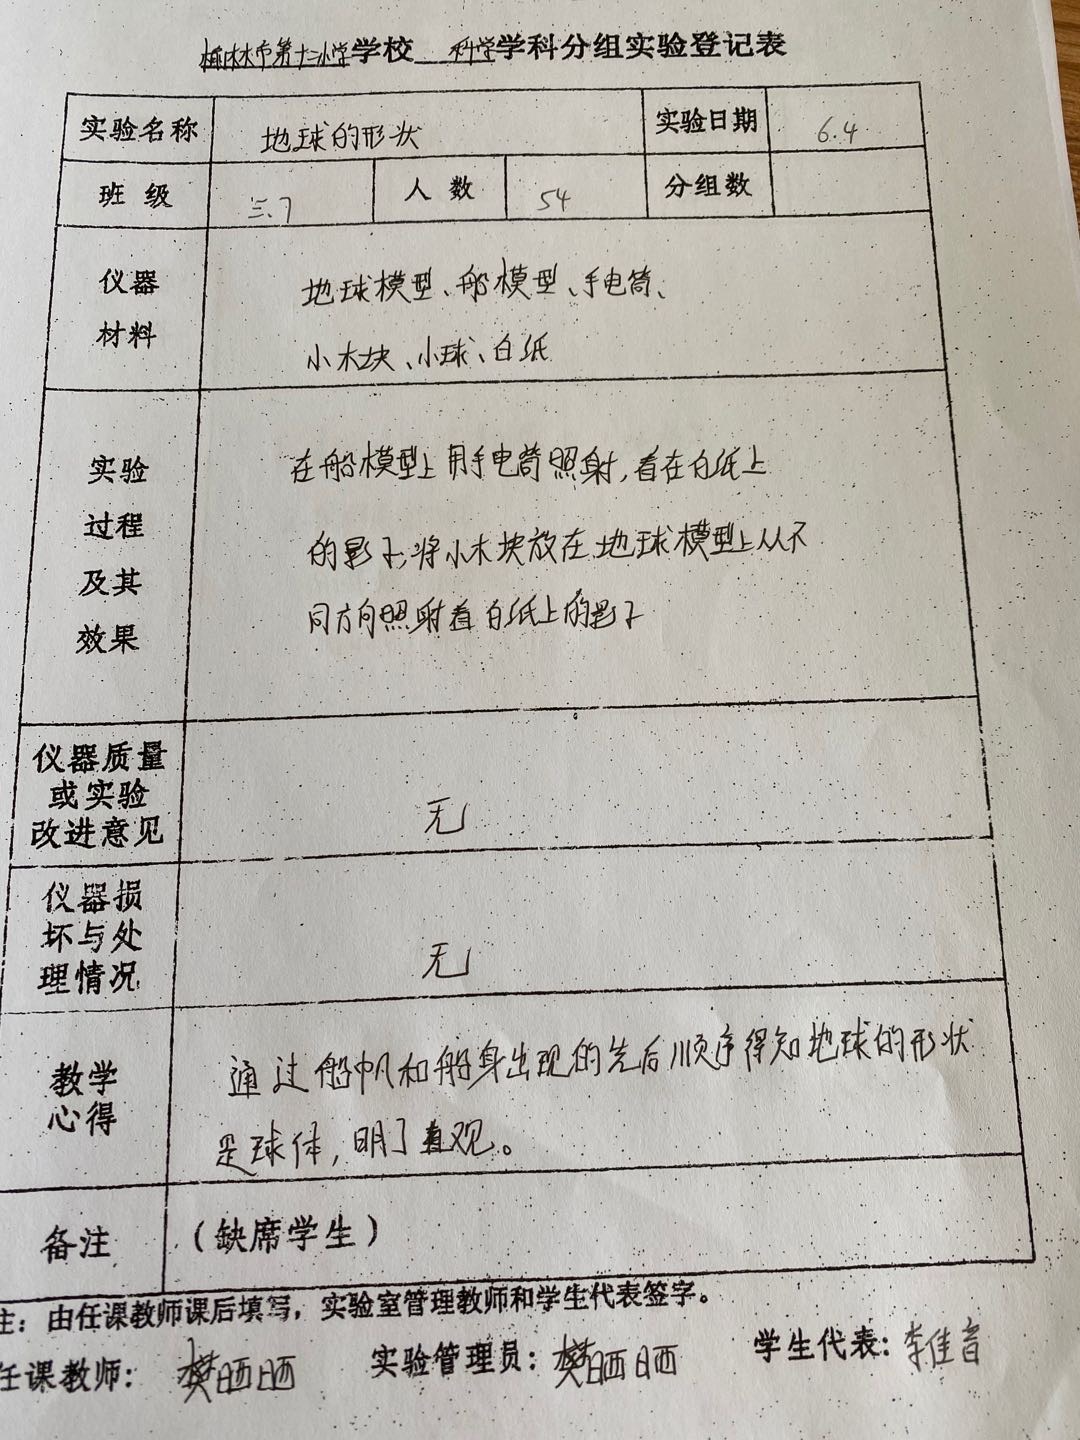 榆林市第十二小学学校 科学学科分组实验登记表
实验名称 地球的形状 实验日期 6.4
班级 三.7 人数 54 分组数
仪器
材料
地球模型、船模型、手电筒、
小木块、小球、白纸
实验
过程
及其
效果
在船模型上用手电筒照射,看在白纸上
的影子,将小木块放在地球模型上从不
同方向照射看白纸上的影子
仪器质量
或实验
改进意见
无
仪器损
坏与处
理情况
无
教学
心得
通过船帆和船身出现的先后顺序得知地球的形状
是球体,明了直观。
备注 (缺席学生)
注:由任课教师课后填写,实验室管理教师和学生代表签字。
任课教师: 樊晒晒 实验管理员: 樊晒晒 学生代表: 李佳音